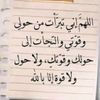 اللهم إني تبرأت من حولي
وقوتي والتجأت إلى
حولك وقوتك، ولا حول
ولا قوة إلا بالله